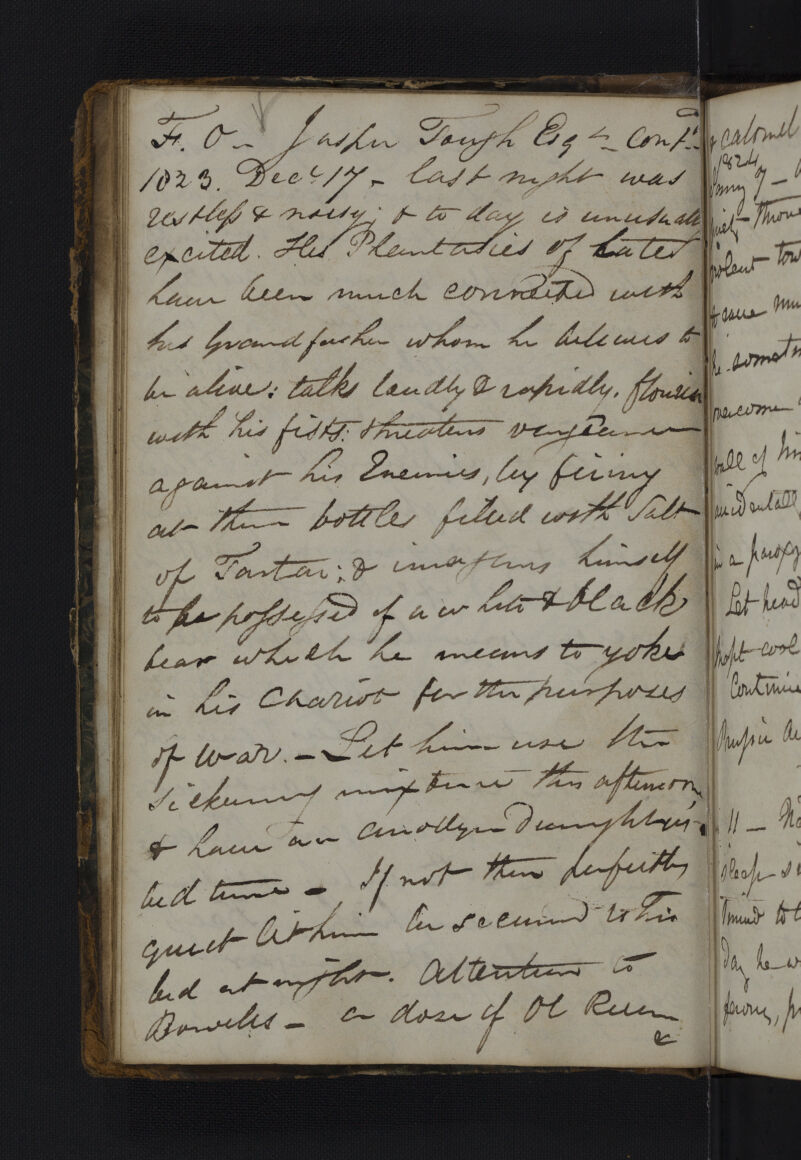 F. O – Jasper Tough Esqr – Contd
1823. Decr 17 – last night was
restless & noisy; & to day is unusually
excited. His Phantasies of late
have been much connected with
his Grandfather whom he believes to
be alive: talks loudly & rapidly. flourishes
with his fists: threatens vengeance
against his Enemies, by firing
at them bottles filled with Salt
of Tartar; & imagines himself
to be possessed of a white & black
bear which he means to yoke
in his Chariot for the purposes
of war. – Let him use the
sickening mixture this afternoon
& have an anodyne Draught
bed time – If not then perfectly
quiet let him be secured to his
bed at night. Attention to
Bowells – a dose of Ol Ricin
&
calomel
1824
Janny 7 –
violent
he
overcome
in a
Let head
kept cool
Continue
11 –
sleep
day he